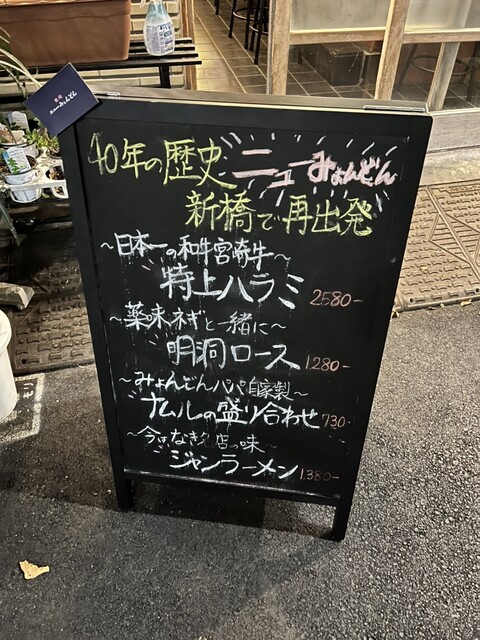 40年の歴史 ニューみょんどん
新橋で再出発
~日本一の和牛宮崎牛~
特上ハラミ 2580-
~薬味ネギと一緒に~
明洞ロース 1280-
~みょんどんパパ自家製~
ナムルの盛り合わせ 730-
~今はなき 店の味
ジャンラーメン 1,380-